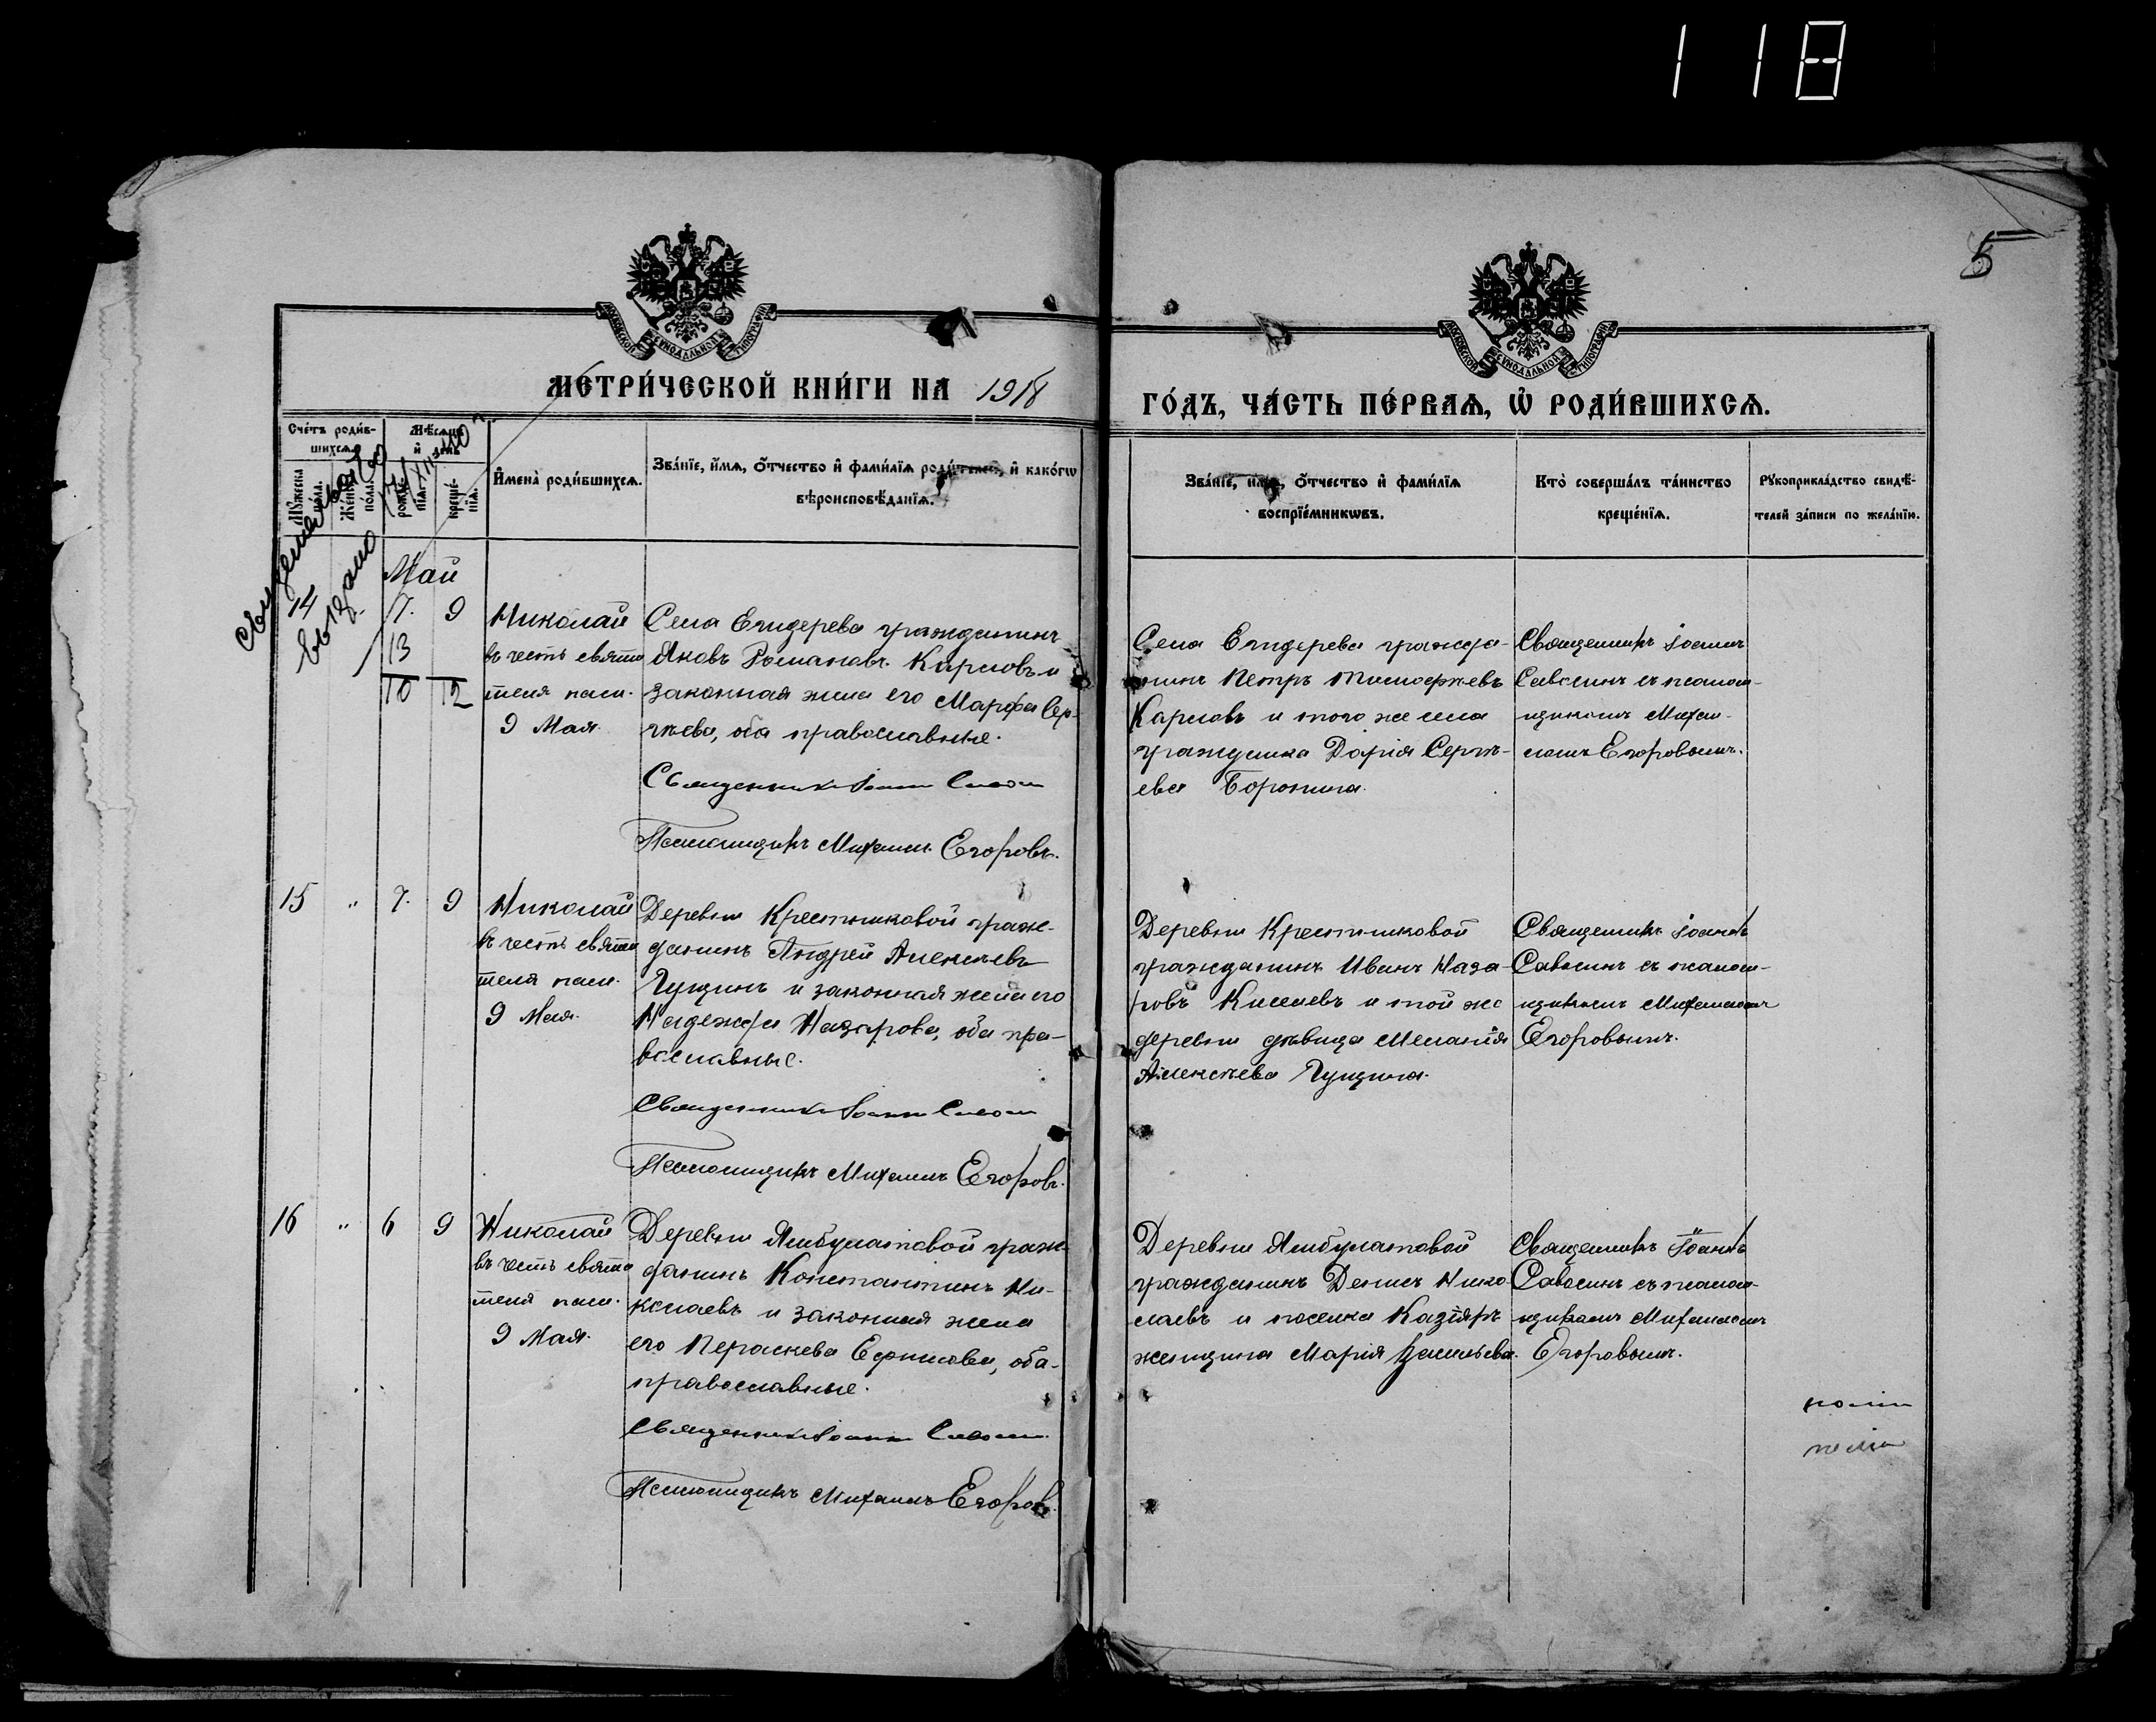 118
5
МЕТРИ́ЧЕСКОЙ КНИ́ГИ НА 1918
ГО́ДЪ, ЧА́СТЬ ПЕ́РВАѦ, Ѡ҆ РОДИ́ВШИХСѦ.
Сче́тъ роди́в-
шихсѧ.
Мѣ́сѧцъ
и҆ день
Мꙋ́жеска
по́ла.
Же́нска
по́ла.
рожде́-
нїѧ.
креще́-
нїѧ.
И҆мена̀ роди́вшихсѧ.
Зва́нїе, и҆́мѧ, ѻ҆́тчество и҆ фами́лїѧ роди́телей, и҆ како́гѡ
вѣроисповѣ́данїѧ.
Зва́нїе, и҆́мѧ, ѻ҆́тчество и҆ фами́лїѧ
воспрїе́мникѡвъ.
Кто̀ соверша́лъ та́инство
креще́нїѧ.
Рꙋкоприкла́дство свидѣ́-
телей за́писи по жела́нїю.
выдано
Май
14
7. 9
13
10 12
Николай
въ честь святи
теля пам.
9 Мая.
Села Ендерева гражданинъ
Яковъ Романовъ Карповъ и
законная жена его Марфа Сер-
гѣева, оба православные.
Священникъ Іоаннъ
Псаломщикъ Михаилъ Егоровъ.
Села Ендерева гражда-
нинъ Петръ Тимофеевъ
Карповъ и того же села
гражданка Дарія Сергѣ-
ева Боронина.
Священникъ Іоаннъ
Савосинъ съ псалом-
щикомъ Михаи-
ломъ Егоровымъ.
15 „ 7. 9
Николай
въ честь святи
теля пам.
9 Мая.
Деревни Крестниковой граж-
данинъ Андрей Алексѣевъ
Гущинъ и законная жена его
Надежда Назарова, оба пра-
вославные.
Священникъ Іоаннъ
Псаломщикъ Михаилъ Егоровъ.
Деревни Крестниковой
гражданинъ Иванъ Наза-
ровъ Киселевъ и той же
деревни дѣвица Меланія
Алексѣева Гущина.
Священникъ Іоаннъ
Савосинъ съ псалом-
щикомъ Михаиломъ
Егоровымъ.
16 „ 6 9
Николай
въ честь святи
теля пам.
9 Мая.
Деревни Ямбулатовой граж-
данинъ Константинъ Ни-
колаевъ и законная жена
его Параскева Ефимова, оба
православные.
Священникъ Іоаннъ
Псаломщикъ Михаилъ Егоровъ.
Деревни Ямбулатовой
гражданинъ Денисъ Нико-
лаевъ и поселка Казтяръ
женщина Марія Васильева.
Священникъ Іоаннъ
Савосинъ съ псалом-
щикомъ Михаиломъ
Егоровымъ.